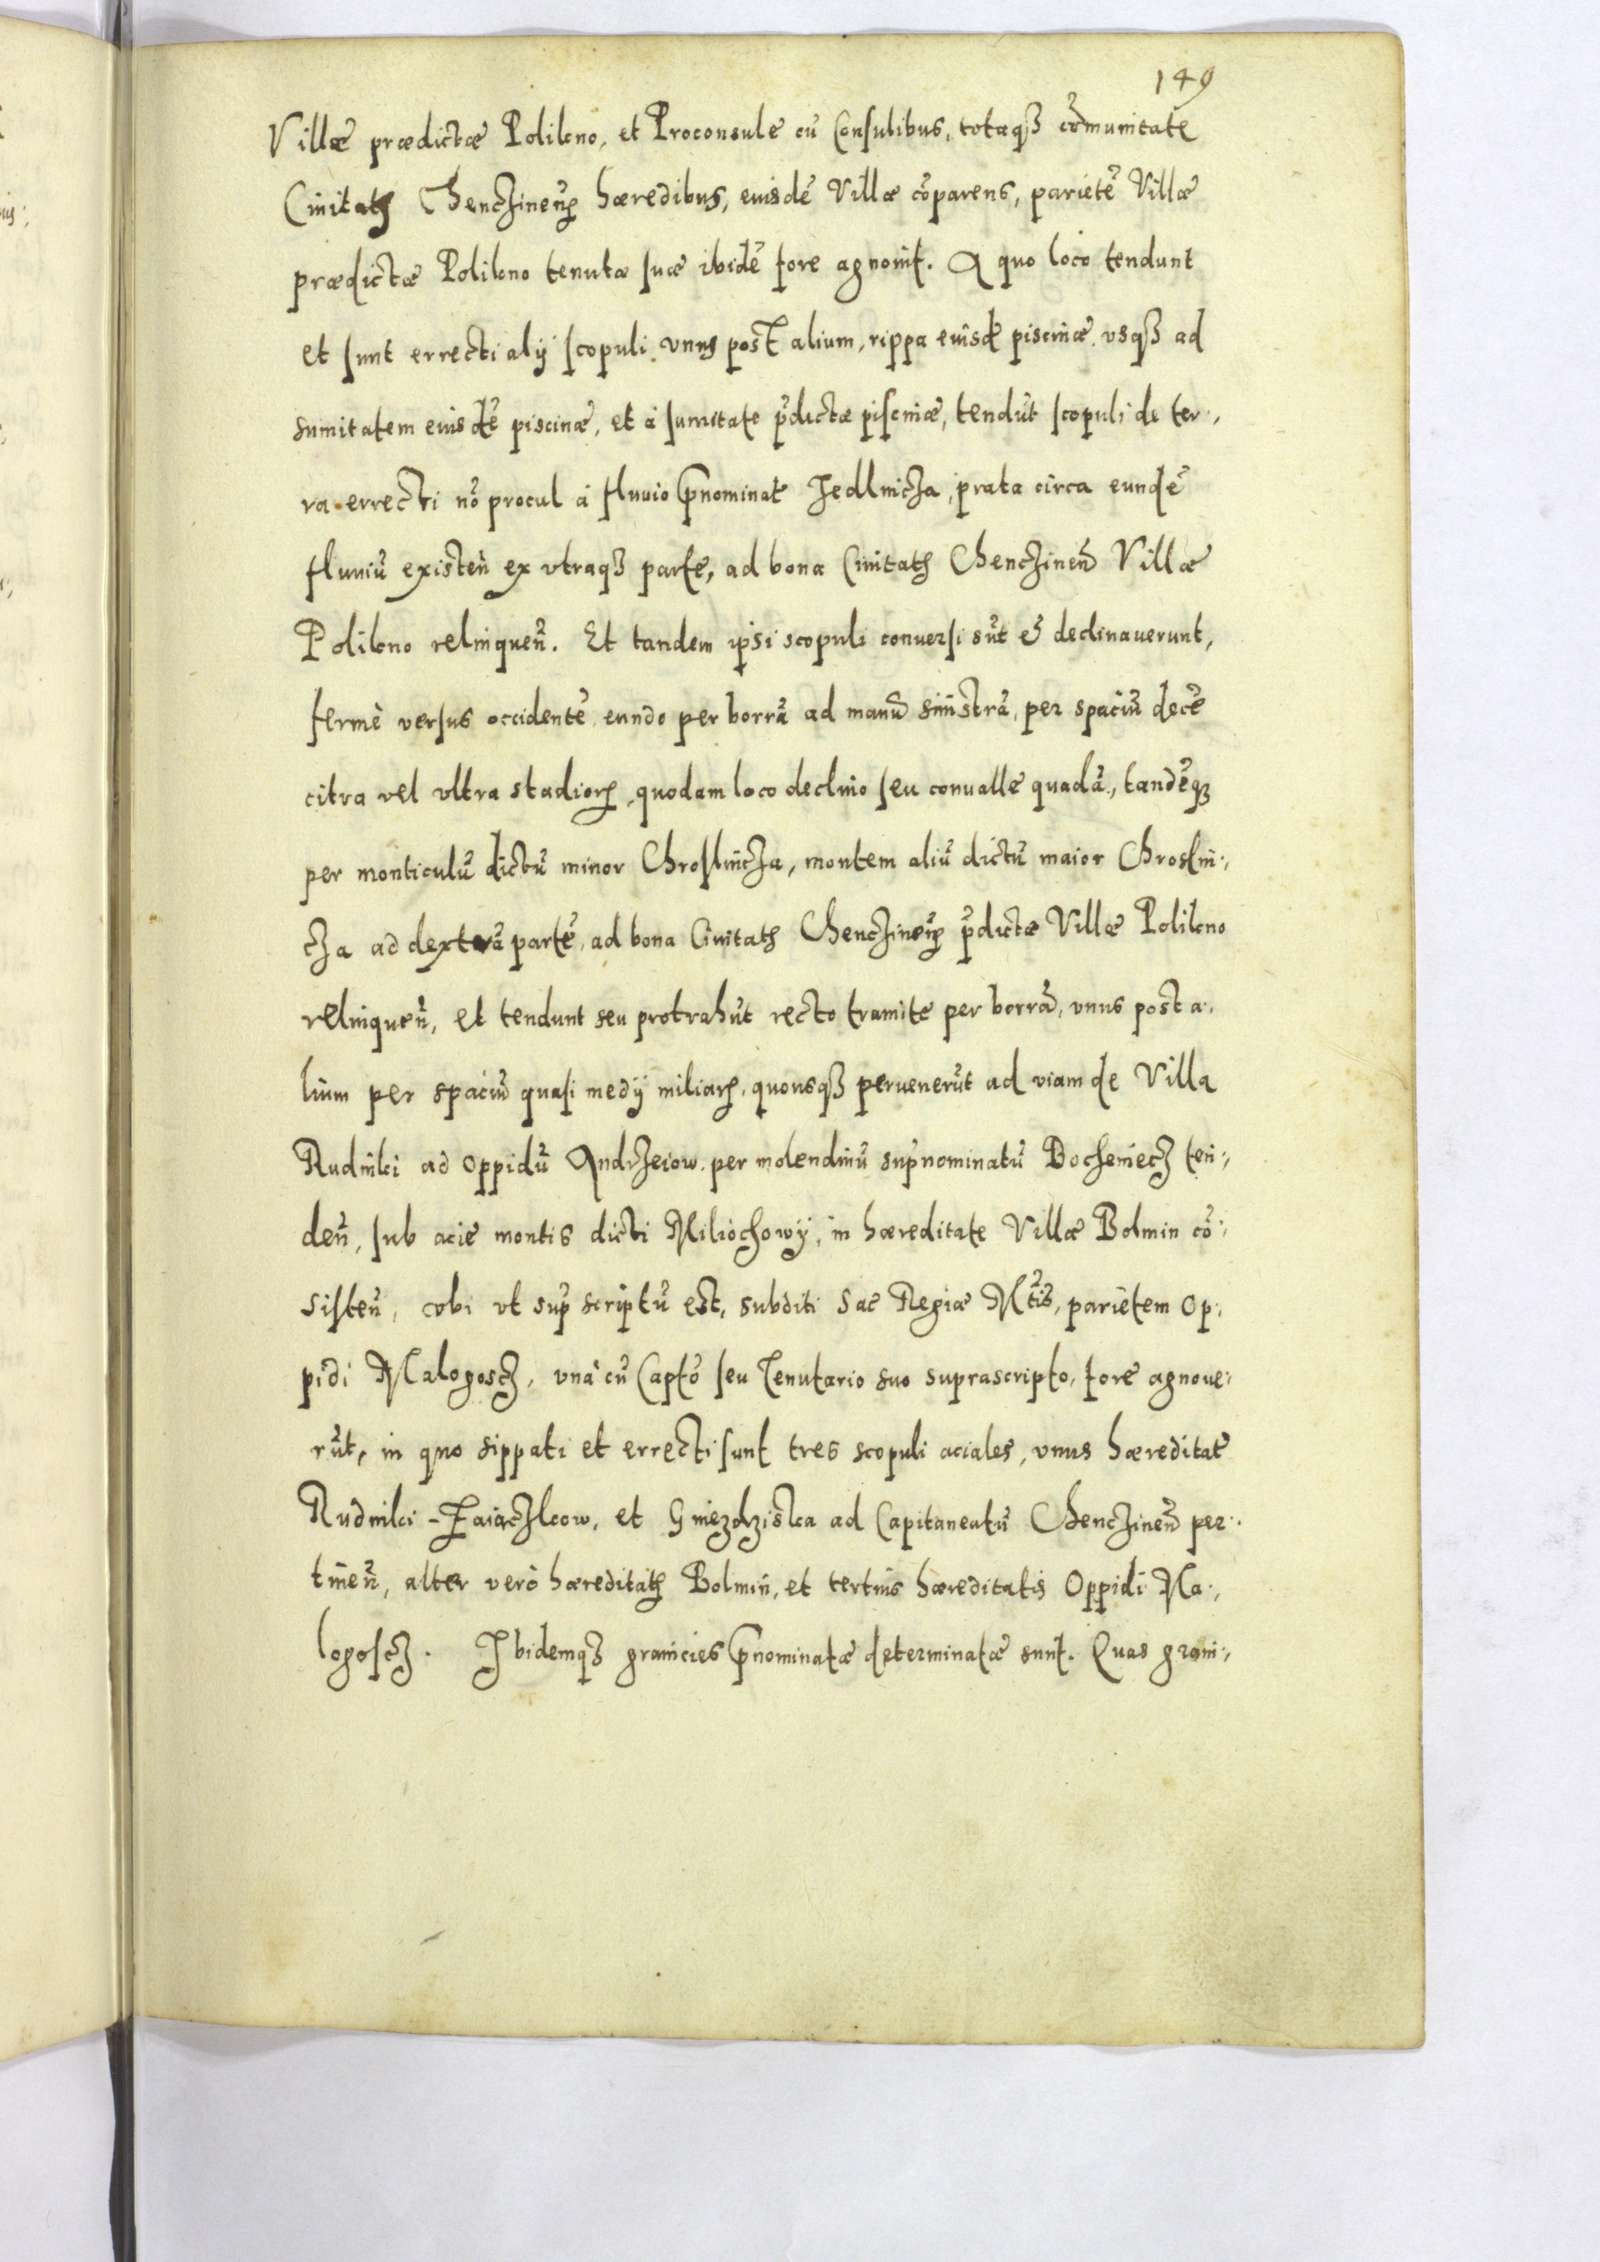 149
Villæ prædictæ Polikno, et Proconsule cũ Consulibus, totaqȝ cõmunitate
Ciuitatꝭ Chenczinen̄ hæredibus, euisdẽ Villæ cõparens, parietẽ Villæ
prædictæ Polikno tenutæ suæ ibidẽ fore agnouit. A quo loco tendunt
et sunt errecti alÿ scopuli, vnus post alium, rippa euisdẽ piscinæ, vsqȝ ad
sumitatem euisdẽ piscinæ, et à sumitate p̃dictæ piscinæ, tendũt scopuli de ter:,
ra errecti nõ procul à fluuio p̃nominat Jedlnicza, prata circa eundẽ
fluuiũ existen̄ ex vtraqȝ parte, ad bona Ciuitatꝭ Chenczinen̄ Villæ
Polikno relinquen̄. Et tandem ipsi scopuli conuersi sũt et declinauerunt,
fermè versus occidentẽ eundo per borrã ad manũ sinistrã, per spaciũ decẽ
citra vel vltra stadiorꝭ, quodam loco decliuio seu conualle quadã, tandẽqȝ
per monticulũ dictũ minor Chroslnicza, montem aliũ dictũ maior Chroslni:,
cza ad dextrã partẽ, ad bona Ciuitatꝭ Chenczinen̄ p̃dictæ Villæ Polikno
relinquen̄, et tendunt seu protrahũt recto tramite per borrã, vnus post a:
lium per spaciũ quasi medÿ miliarꝭ, quousqȝ peruenerũt ad viam de Villa
Rudniki ad Oppidũ Andrzeiow, per molendinũ sup̃nominatũ Bocheniecz ten:,
den̄, sub acie montis dicti Miliochowÿ, in hæreditate Villæ Bolmin cõ:
sisten̄, vbi vt sup̃ scriptũ est, subditi Sac Regiæ Mt̃is, parietem Op:
pidi Malogoscz, vnà cũ Captõ seu Tenutario suo suprascripto, fore agnoue:
rũt, in quo sippati et errecti sunt tres scopuli aciales, vnus hæreditat
Rudniki - Zaiaczkow, et Gniezdziska ad Capitaneatũ Chenczinen̄ per:
tinen̄, alter verò hæreditatꝭ Bolmin, et tertius hæreditatis Oppidi Ma:,
logoscz. Ibidemqȝ granicies p̃nominatæ determinatæ sunt. Quas grani:,